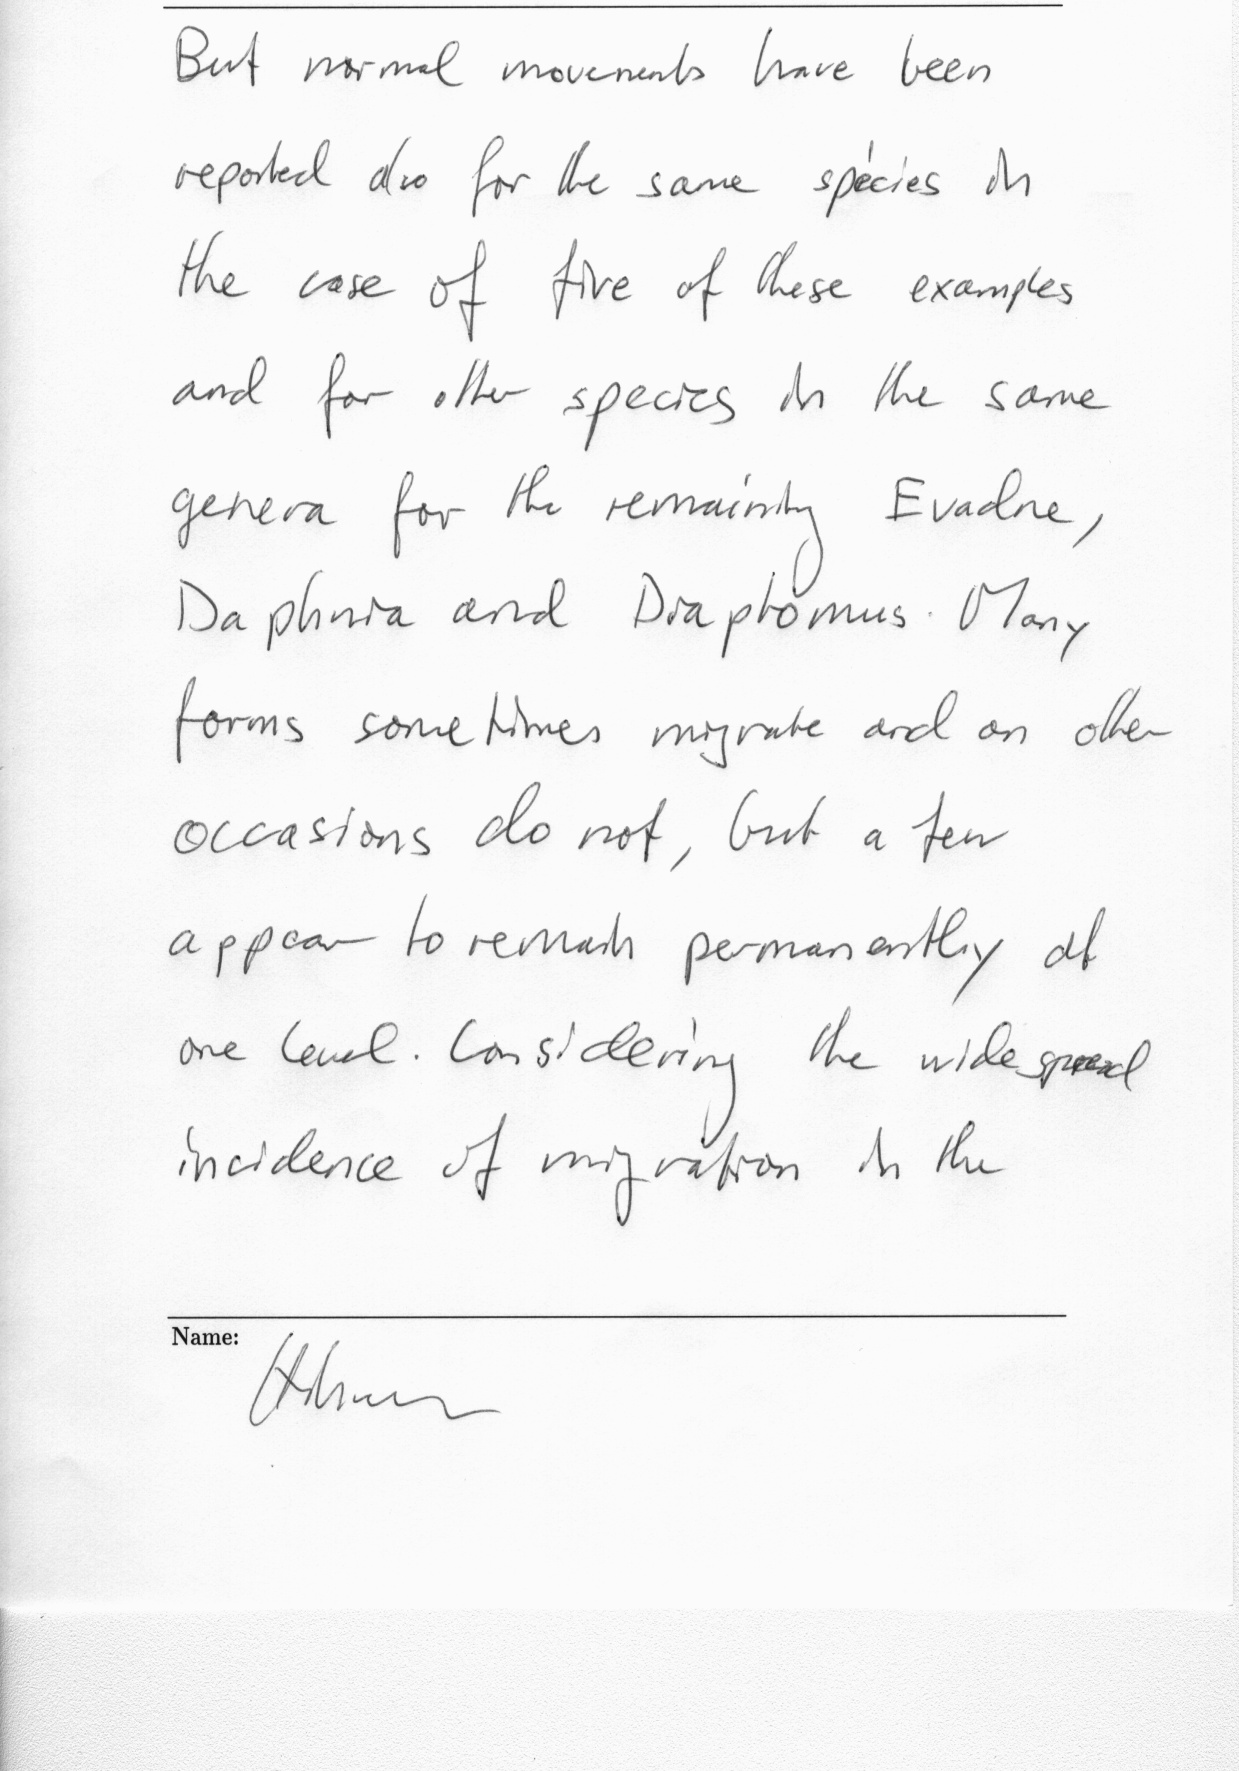 But normal movements have been
reported also for the same species in
the case of five of these examples
and for other species in the same
genera for the remaining Evadne,
Daphnia and Diaptomus. Many
forms sometimes migrate and on other
occasions do not, but a few
appear to remain permanently at
one level. Considering the widespread
incidence of migration in the
Name: